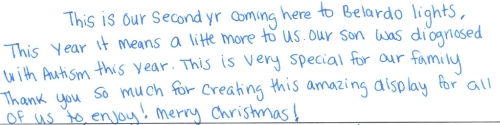 This is our second yr coming here to Belardo lights,
This year it means a little more to us. our son was diagnosed
with Autism this year. This is very special for our family
Thank you so much for creating this amazing display for all
of us to enjoy! Merry Christmas!